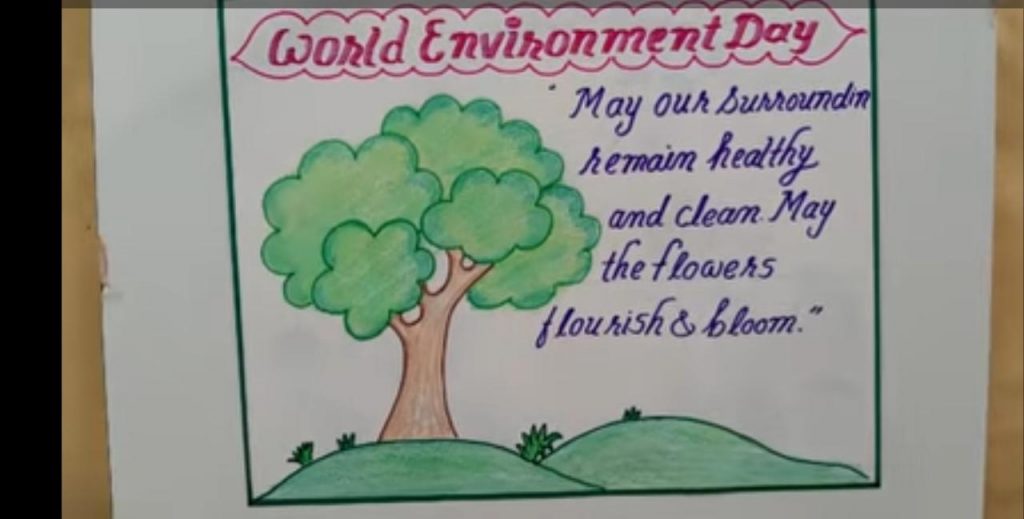 World Environment Day
" May our surroundin
remain healthy
and clean. May
the flowers
flourish & bloom."